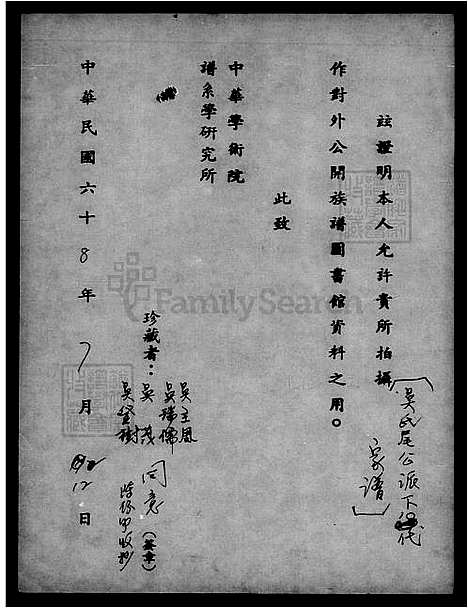 茲證明本人允許貴所拍攝
〔吳氏尾公派下
家譜〕
作對外公開族譜圖書館資料之用。
此致
中華學術院
譜系學研究所
珍藏者：
吳主恩
吳瑞儒
吳茂
吳賢樹
同意
（簽章）
中華民國六十8年7月12日
FamilySearch